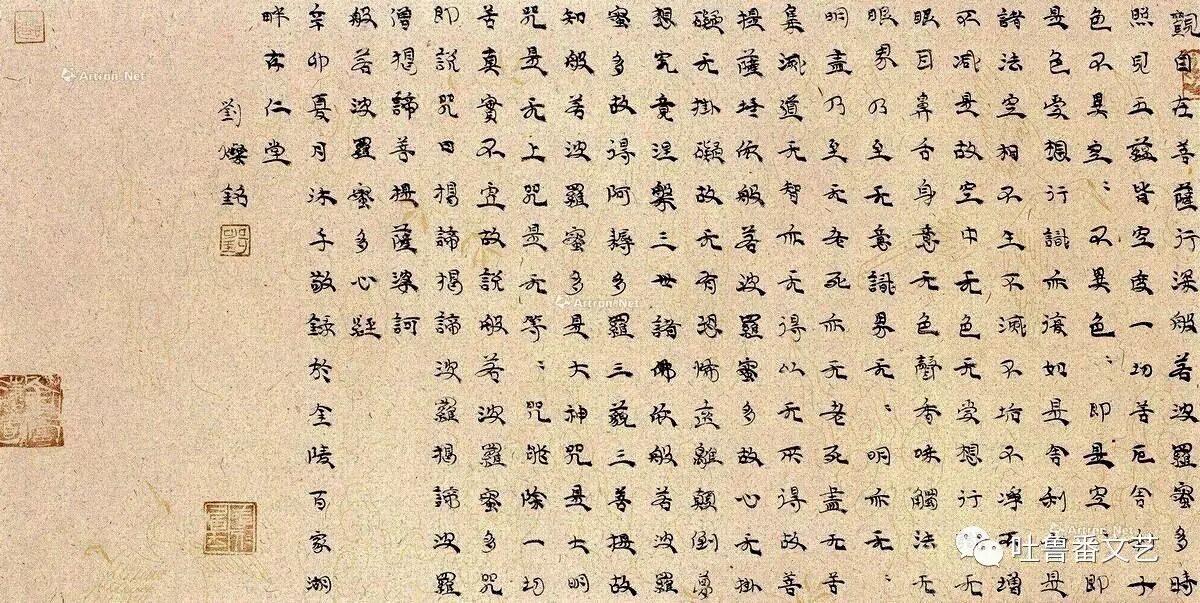 觀自在菩薩行深般若波羅蜜多時
照見五蘊皆空度一切苦厄舍利子
色不異空〻不異色〻即是空〻即
是色受想行識亦復如是舍利子是
諸法空相不生不滅不垢不淨不增
不減是故空中无色无受想行識无
眼耳鼻舌身意无色聲香味觸法无
眼界乃至无意識界无〻明亦无〻
明盡乃至无老死亦无老死盡无苦
集滅道无智亦无得以无所得故菩
提薩埵依般若波羅蜜多故心无掛
礙无掛礙故无有恐怖遠離顛倒夢
想究竟涅槃三世諸佛依般若波羅
蜜多故得阿耨多羅三藐三菩提故
知般若波羅蜜多是大神咒是大明
咒是无上咒是无等〻咒能除一切
苦真實不虛故說般若波羅蜜多咒
即說咒曰揭諦揭諦波羅揭諦波羅
僧揭諦菩提薩婆訶
般若波羅蜜多心經
辛卯夏月沐手敬錄於金陵百家湖
畔仁堂
劉燦銘
Artron.Net
Artron.Net
Artron.Net
吐鲁番文艺